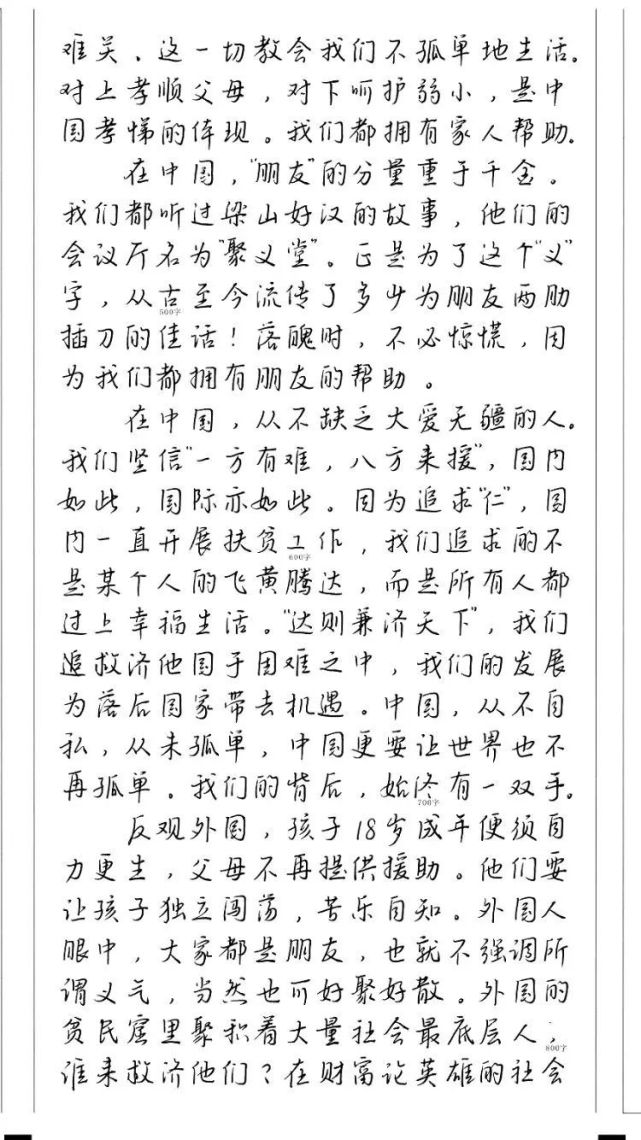 难关、这一切教会我们不孤单地生活。
对上孝顺父母，对下呵护弱小，是中
国孝悌的体现。我们都拥有家人帮助。
在中国，“朋友”的分量重于千金。
我们都听过梁山好汉的故事，他们的
会议厅名为“聚义堂”。正是为了这个“义”
字，从古至今流传了多少为朋友两肋
500字
插刀的佳话！落魄时，不必惊慌，因
为我们都拥有朋友的帮助。
在中国，从不缺乏大爱无疆的人。
我们坚信“一方有难，八方来援”，国内
如此，国际亦如此。因为追求“仁”，国
内一直开展扶贫工作，我们追求的不
600字
是某个人的飞黄腾达，而是所有人都
过上幸福生活。“达则兼济天下”，我们
追救济他国于困难之中，我们的发展
为落后国家带去机遇。中国，从不自
私，从未孤单，中国更要让世界也不
再孤单。我们的背后，始终有一双手。
700字
反观外国，孩子18岁成年便须自
力更生，父母不再提供援助。他们要
让孩子独立闯荡，苦乐自知。外国人
眼中，大家都是朋友，也就不强调所
谓义气，当然也可好聚好散。外国的
贫民窟里聚积着大量社会最底层人，
800字
谁来救济他们？在财富论英雄的社会